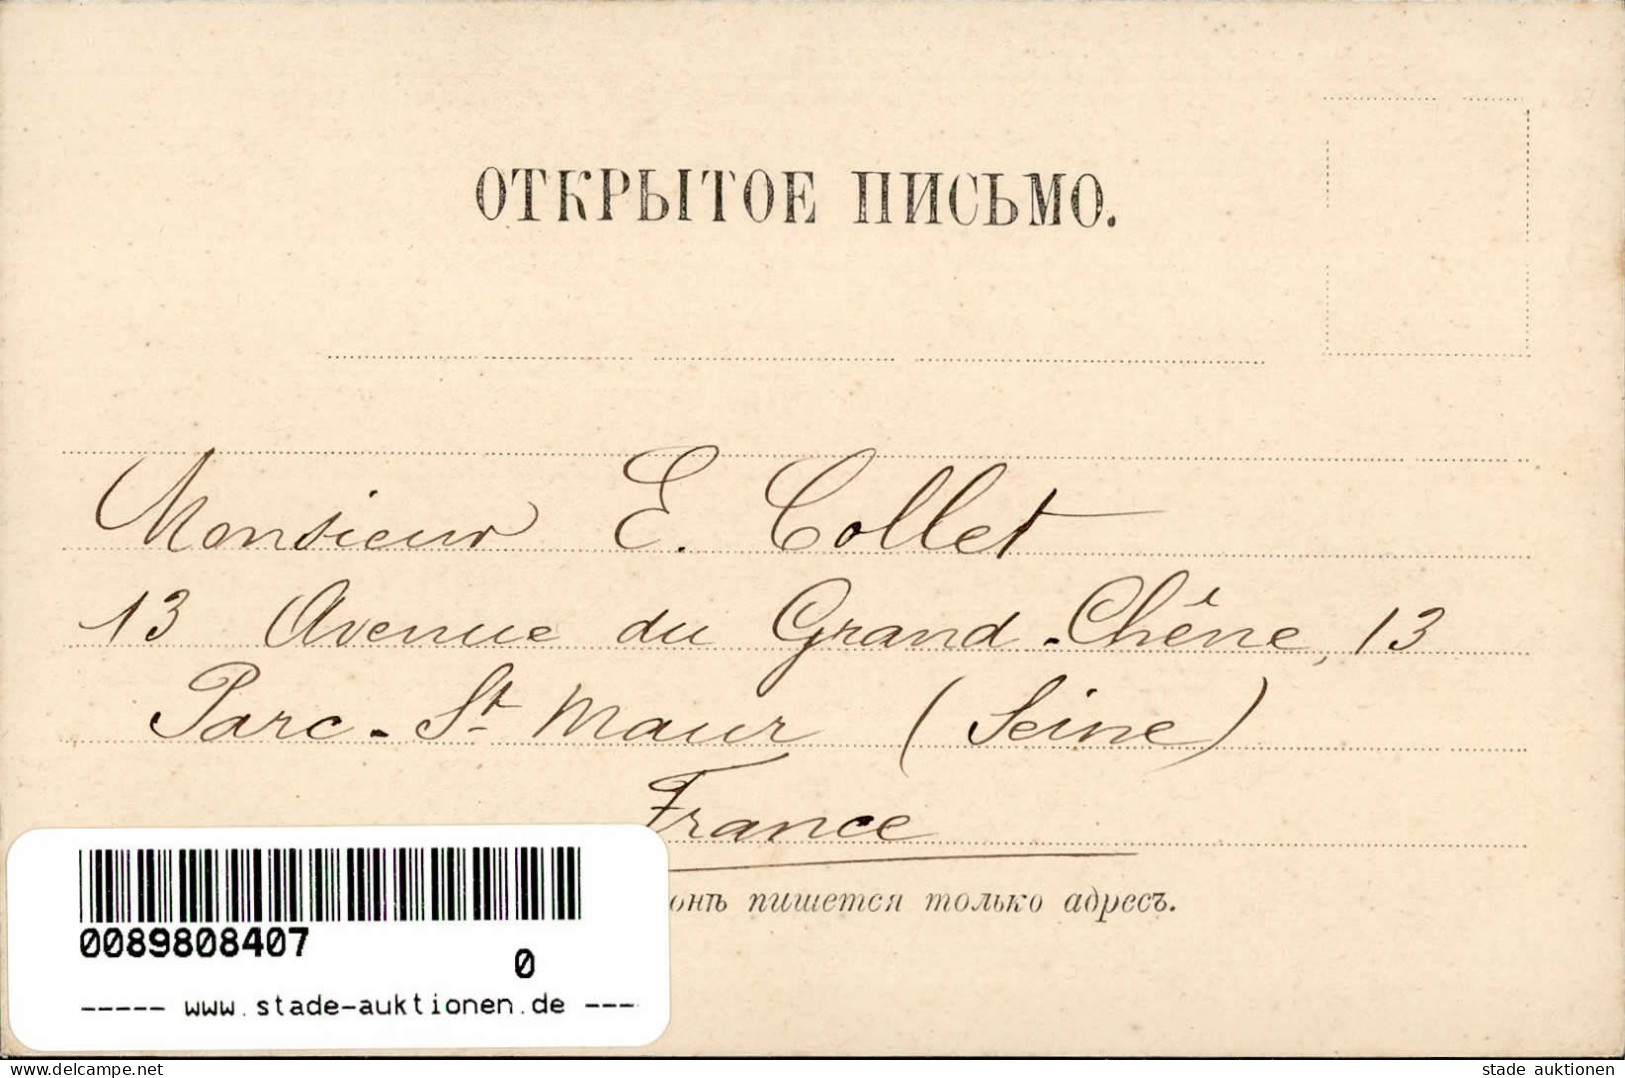 ОТКРЫТОЕ ПИСЬМО.
Monsieur E. Collet
13 Avenue du Grand-Chêne, 13
Parc-St Maur (Seine)
France
пишется только адресъ.
0089808407
0
----- www.stade-auktionen.de ---
www.delcampe.net
stade auktionen